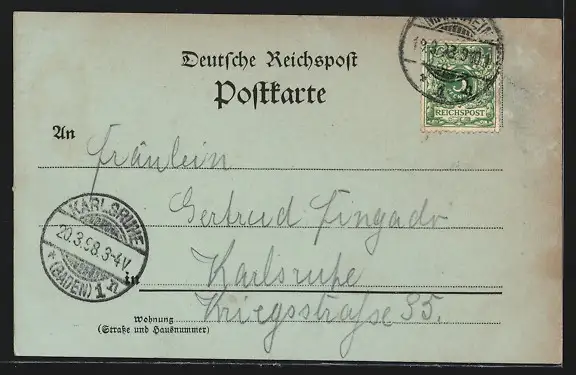 Deutsche Reichspost
Postkarte
An
REICHSPOST
Fräulein
Gertrud Fingado
KARLSRUHE
20.3.98.3-4V
* (BADEN) 1 h
in Karlsruhe
Wohnung
(Straße und Hausnummer)
Kriegsstraße 35.